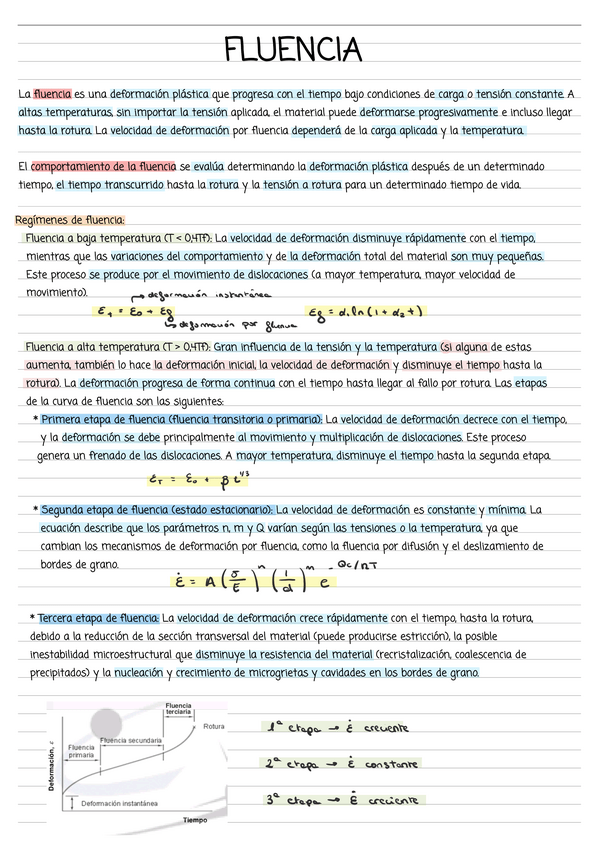 FLUENCIA
La fluencia es una deformación plástica que progresa con el tiempo bajo condiciones de carga o tensión constante. A
altas temperaturas, sin importar la tensión aplicada, el material puede deformarse progresivamente e incluso llegar
hasta la rotura. La velocidad de deformación por fluencia dependerá de la carga aplicada y la temperatura.
El comportamiento de la fluencia se evalúa determinando la deformación plástica después de un determinado
tiempo, el tiempo transcurrido hasta la rotura y la tensión a rotura para un determinado tiempo de vida.
Regímenes de fluencia:
Fluencia a baja temperatura (T < 0,4Tf): La velocidad de deformación disminuye rápidamente con el tiempo,
mientras que las variaciones del comportamiento y de la deformación total del material son muy pequeñas.
Este proceso se produce por el movimiento de dislocaciones (a mayor temperatura, mayor velocidad de
movimiento).
→ deformación instantánea
ε₁ = ε₀ + εg    εg = α₁ ln(1 + α₂ t)
↳ deformación por fluencia
Fluencia a alta temperatura (T > 0,4Tf): Gran influencia de la tensión y la temperatura (si alguna de estas
aumenta, también lo hace la deformación inicial, la velocidad de deformación y disminuye el tiempo hasta la
rotura). La deformación progresa de forma continua con el tiempo hasta llegar al fallo por rotura. Las etapas
de la curva de fluencia son las siguientes:
* Primera etapa de fluencia (fluencia transitoria o primaria): La velocidad de deformación decrece con el tiempo,
y la deformación se debe principalmente al movimiento y multiplicación de dislocaciones. Este proceso
genera un frenado de las dislocaciones. A mayor temperatura, disminuye el tiempo hasta la segunda etapa.
εT = ε₀ + β t^1/3
* Segunda etapa de fluencia (estado estacionario): La velocidad de deformación es constante y mínima. La
ecuación describe que los parámetros n, m y Q varían según las tensiones o la temperatura, ya que
cambian los mecanismos de deformación por fluencia, como la fluencia por difusión y el deslizamiento de
bordes de grano.
ε̇ = A (σ/E)^n (1/d)^m e^-Qc/RT
* Tercera etapa de fluencia: La velocidad de deformación crece rápidamente con el tiempo, hasta la rotura,
debido a la reducción de la sección transversal del material (puede producirse estricción), la posible
inestabilidad microestructural que disminuye la resistencia del material (recristalización, coalescencia de
precipitados) y la nucleación y crecimiento de microgrietas y cavidades en los bordes de grano.
Fluencia
terciaria
Rotura
Fluencia secundaria
Fluencia
primaria
Deformación, ε
Deformación instantánea
Tiempo
1ª etapa → ε̇ creciente
2ª etapa → ε̇ constante
3ª etapa → ε̇ creciente